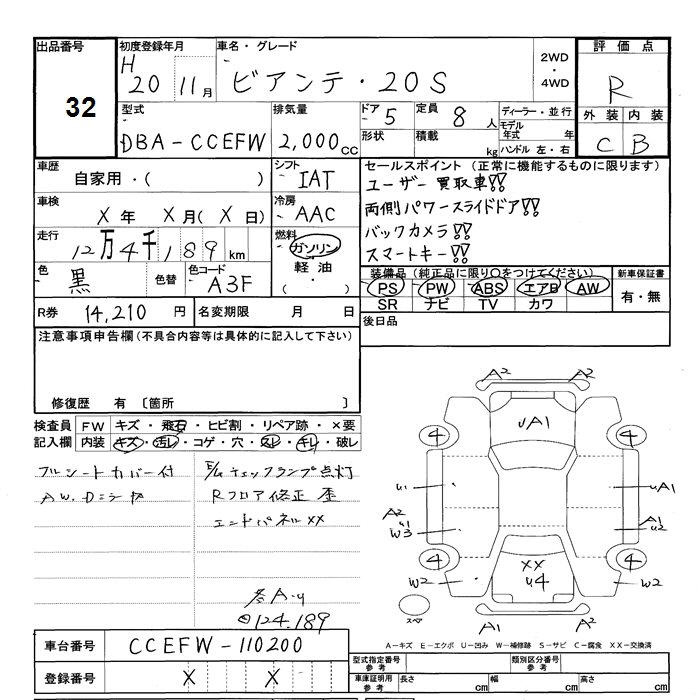 出品番号
32
初度登録年月
H 20 11月
車名・グレード
ビアンテ・20S
2WD
・
4WD
評価点
R
外装 内装
C B
型式
DBA-CCEFW
排気量
2,000 cc
ドア 5
定員 8 人
形状
積載 kg
ディーラー・並行
モデル
年式 年
ハンドル 左・右
車歴
自家用・( )
シフト
IAT
セールスポイント (正常に機能するものに限ります)
ユーザー買取車!!
両側パワースライドドア!!
バックカメラ!!
スマートキー!!
車検
X年 X月(X日)
冷房
AAC
走行
12万4千189 km
燃料
ガソリン
軽油
・( )
色
黒
色替
色コード
A3F
装備品 (純正品に限り〇をつけてください)
PS PW ABS エアB AW
SR ナビ TV カワ
新車保証書
有・無
R券 14,210 円
名変期限 月 日
後日品
注意事項申告欄(不具合内容等は具体的に記入して下さい)
修復歴 有 〔箇所 〕
検査員
記入欄
FW キズ・飛石・ヒビ割・リペア跡・×要
内装 キズ・汚レ・コゲ・穴・スレ・キレ・破レ
フルシートカバー付
E/gチェックランプ点灯
Rフロア修正 歪
エンドパネルXX
124.189
A2 A2
uA1
4 4
u1 uA1
A2 A1
u1 u2
W3
4 4
XX
u4
W2 W2
スペア
A1 A2
A-キズ E-エクボ U-凹み W-補修跡 S-サビ C-腐食 XX-交換済
車台番号
CCEFW-110200
登録番号
X X
型式指定番号
参考
類別区分番号
参考
車庫証明用
参考
長さ cm 幅 cm 高さ cm